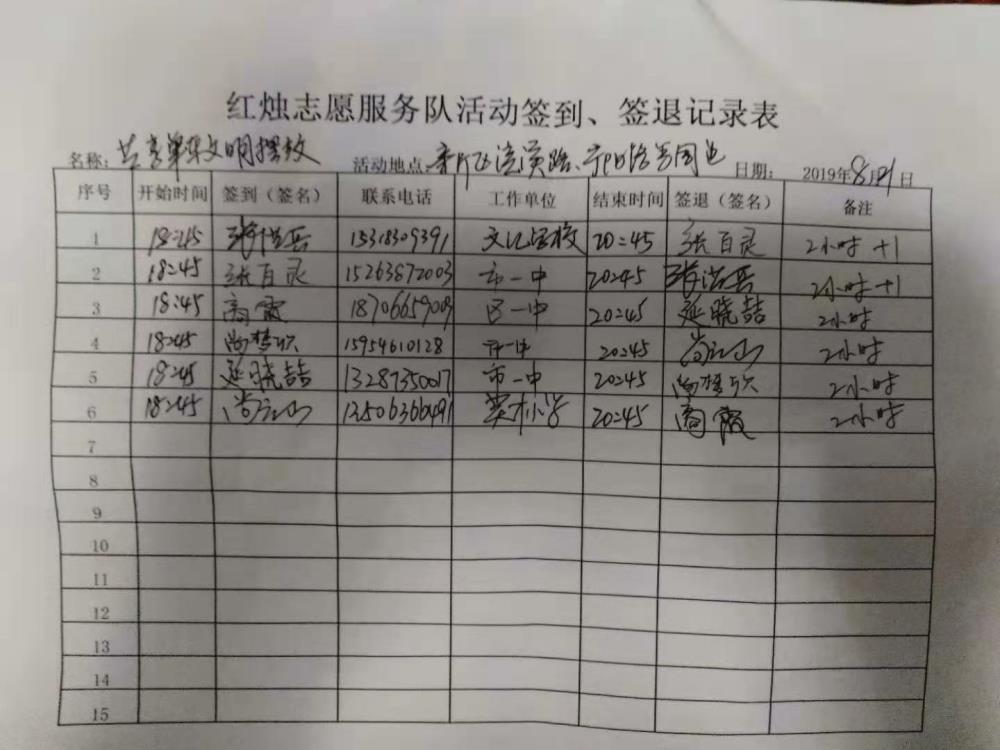 红烛志愿服务队活动签到、签退记录表
名称：共享单车文明摆放 活动地点： 日期： 2019年8月21日
序号 开始时间 签到（签名） 联系电话 工作单位 结束时间 签退（签名） 备注
1 18:45 15318309391 20:45 张百灵 2小时 +1
2 18:45 张百灵 15263872003 市一中 20:45 2小时 +1
3 18:45 高霞 18706659009 区一中 20:45 延晓喆 2小时
4 18:45 尚梦欣 15954610128 20:45 2小时
5 18:45 延晓喆 13287350017 市一中 20:45 尚梦欣 2小时
6 18:45 13506366491 20:45 高霞 2小时
7
8
9
10
11
12
13
14
15